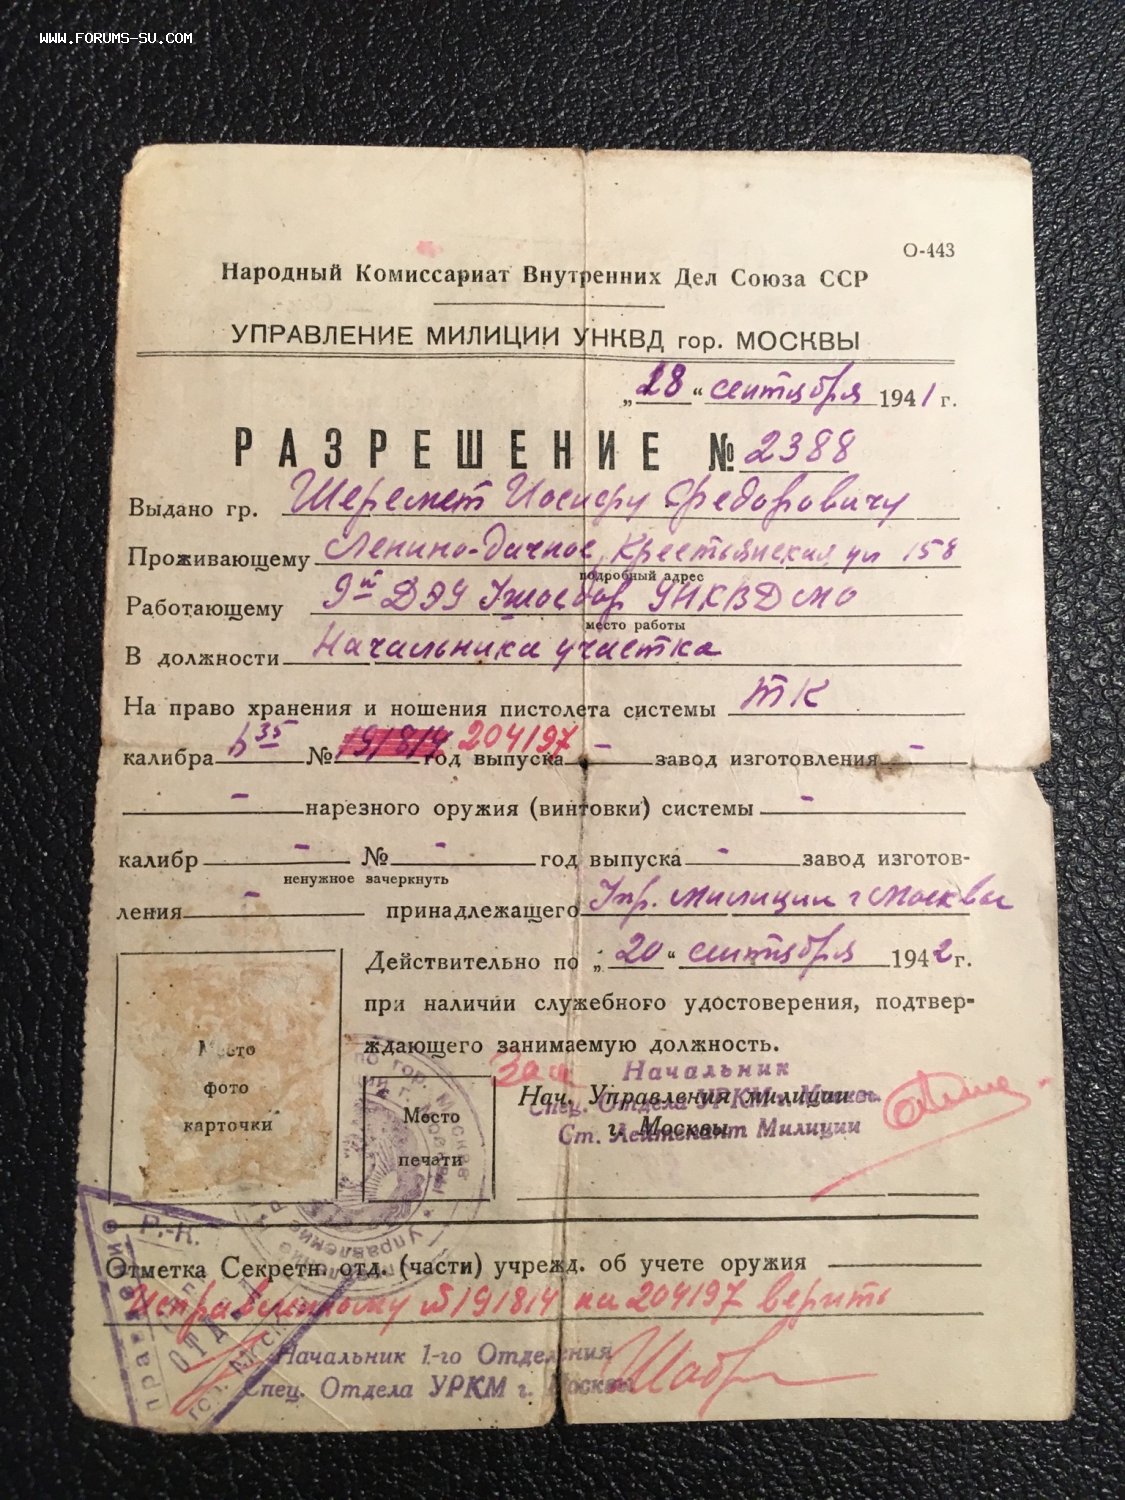 WWW.FORUMS-SU.COM
О-443
Народный Комиссариат Внутренних Дел Союза ССР
УПРАВЛЕНИЕ МИЛИЦИИ УНКВД гор. МОСКВЫ
„28“ сентября 1941 г.
РАЗРЕШЕНИЕ № 2388
Выдано гр. Шеремет Иосифу Федоровичу
Проживающему Ленино-Дачное, Крестьянская ул 158
подробный адрес
Работающему 9й ДЭУ Ушосдор УНКВД МО
место работы
В должности Начальника участка
На право хранения и ношения пистолета системы ТК
калибра 6 35 № 191814 204197 год выпуска – завод изготовления –
– нарезного оружия (винтовки) системы –
калибр – № – год выпуска – завод изготов-
ненужное зачеркнуть
ления – принадлежащего Упр. милиции г Москвы
Действительно по „20“ сентября 1942 г.
при наличии служебного удостоверения, подтвер-
ждающего занимаемую должность.
Место
фото
карточки
Место
печати
Зам
Нач. Управления милиции
г. Москвы
Начальник
Спец. Отдела УРКМ г. Москвы
Ст. Лейтенант Милиции
Р.-К.
Отметка Секретн. отд. (части) учрежд. об учете оружия
Исправленному №191814 на 204197 верить
Начальник 1-го Отделения
Спец. Отдела УРКМ г. Москвы